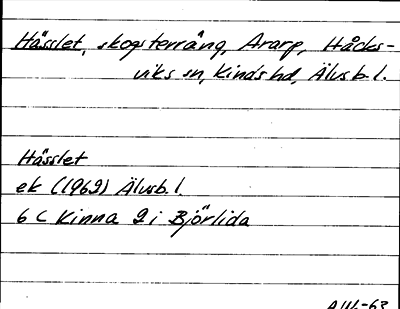 Hässlet, skogsterräng, Ararp, Håcks-
viks sn, Kinds hd, Älvsb. l.
Hässlet
ek (1969) Älvsb. l.
6 C Kinna 2 i Björlida